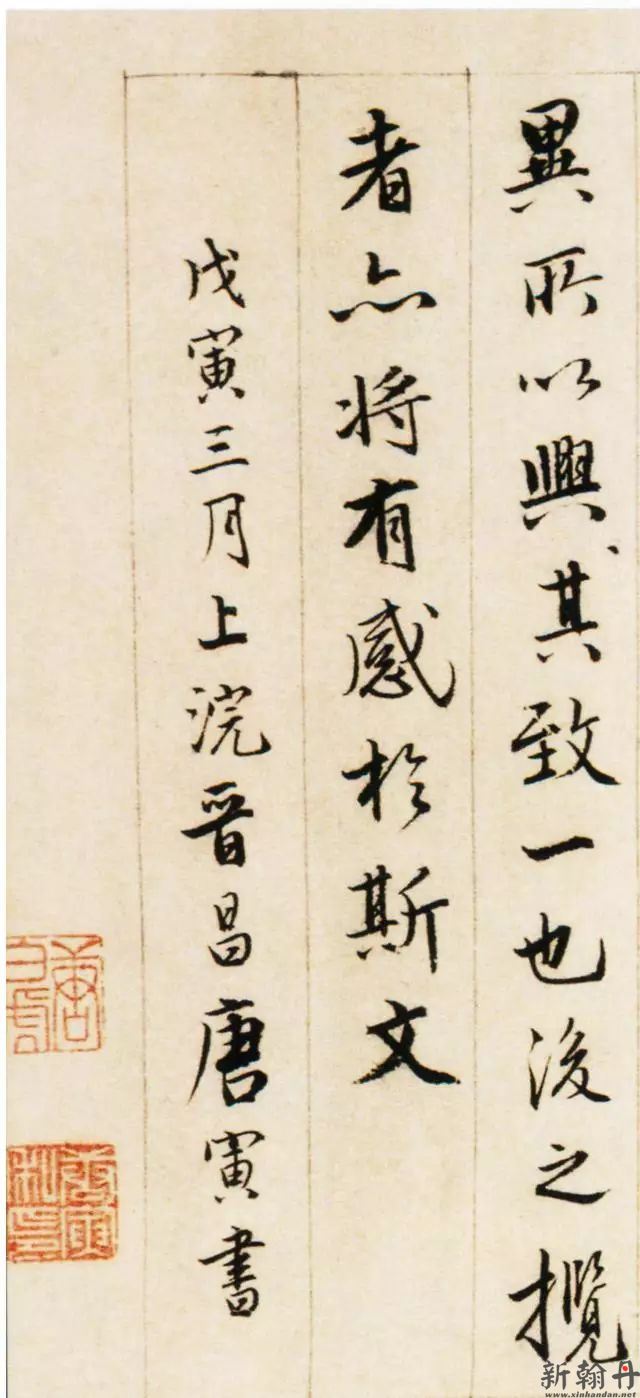 異所以興其致一也後之攬
者亦將有感於斯文
戊寅三月上浣晉昌唐寅書
新翰丹
www.xinhandan.net